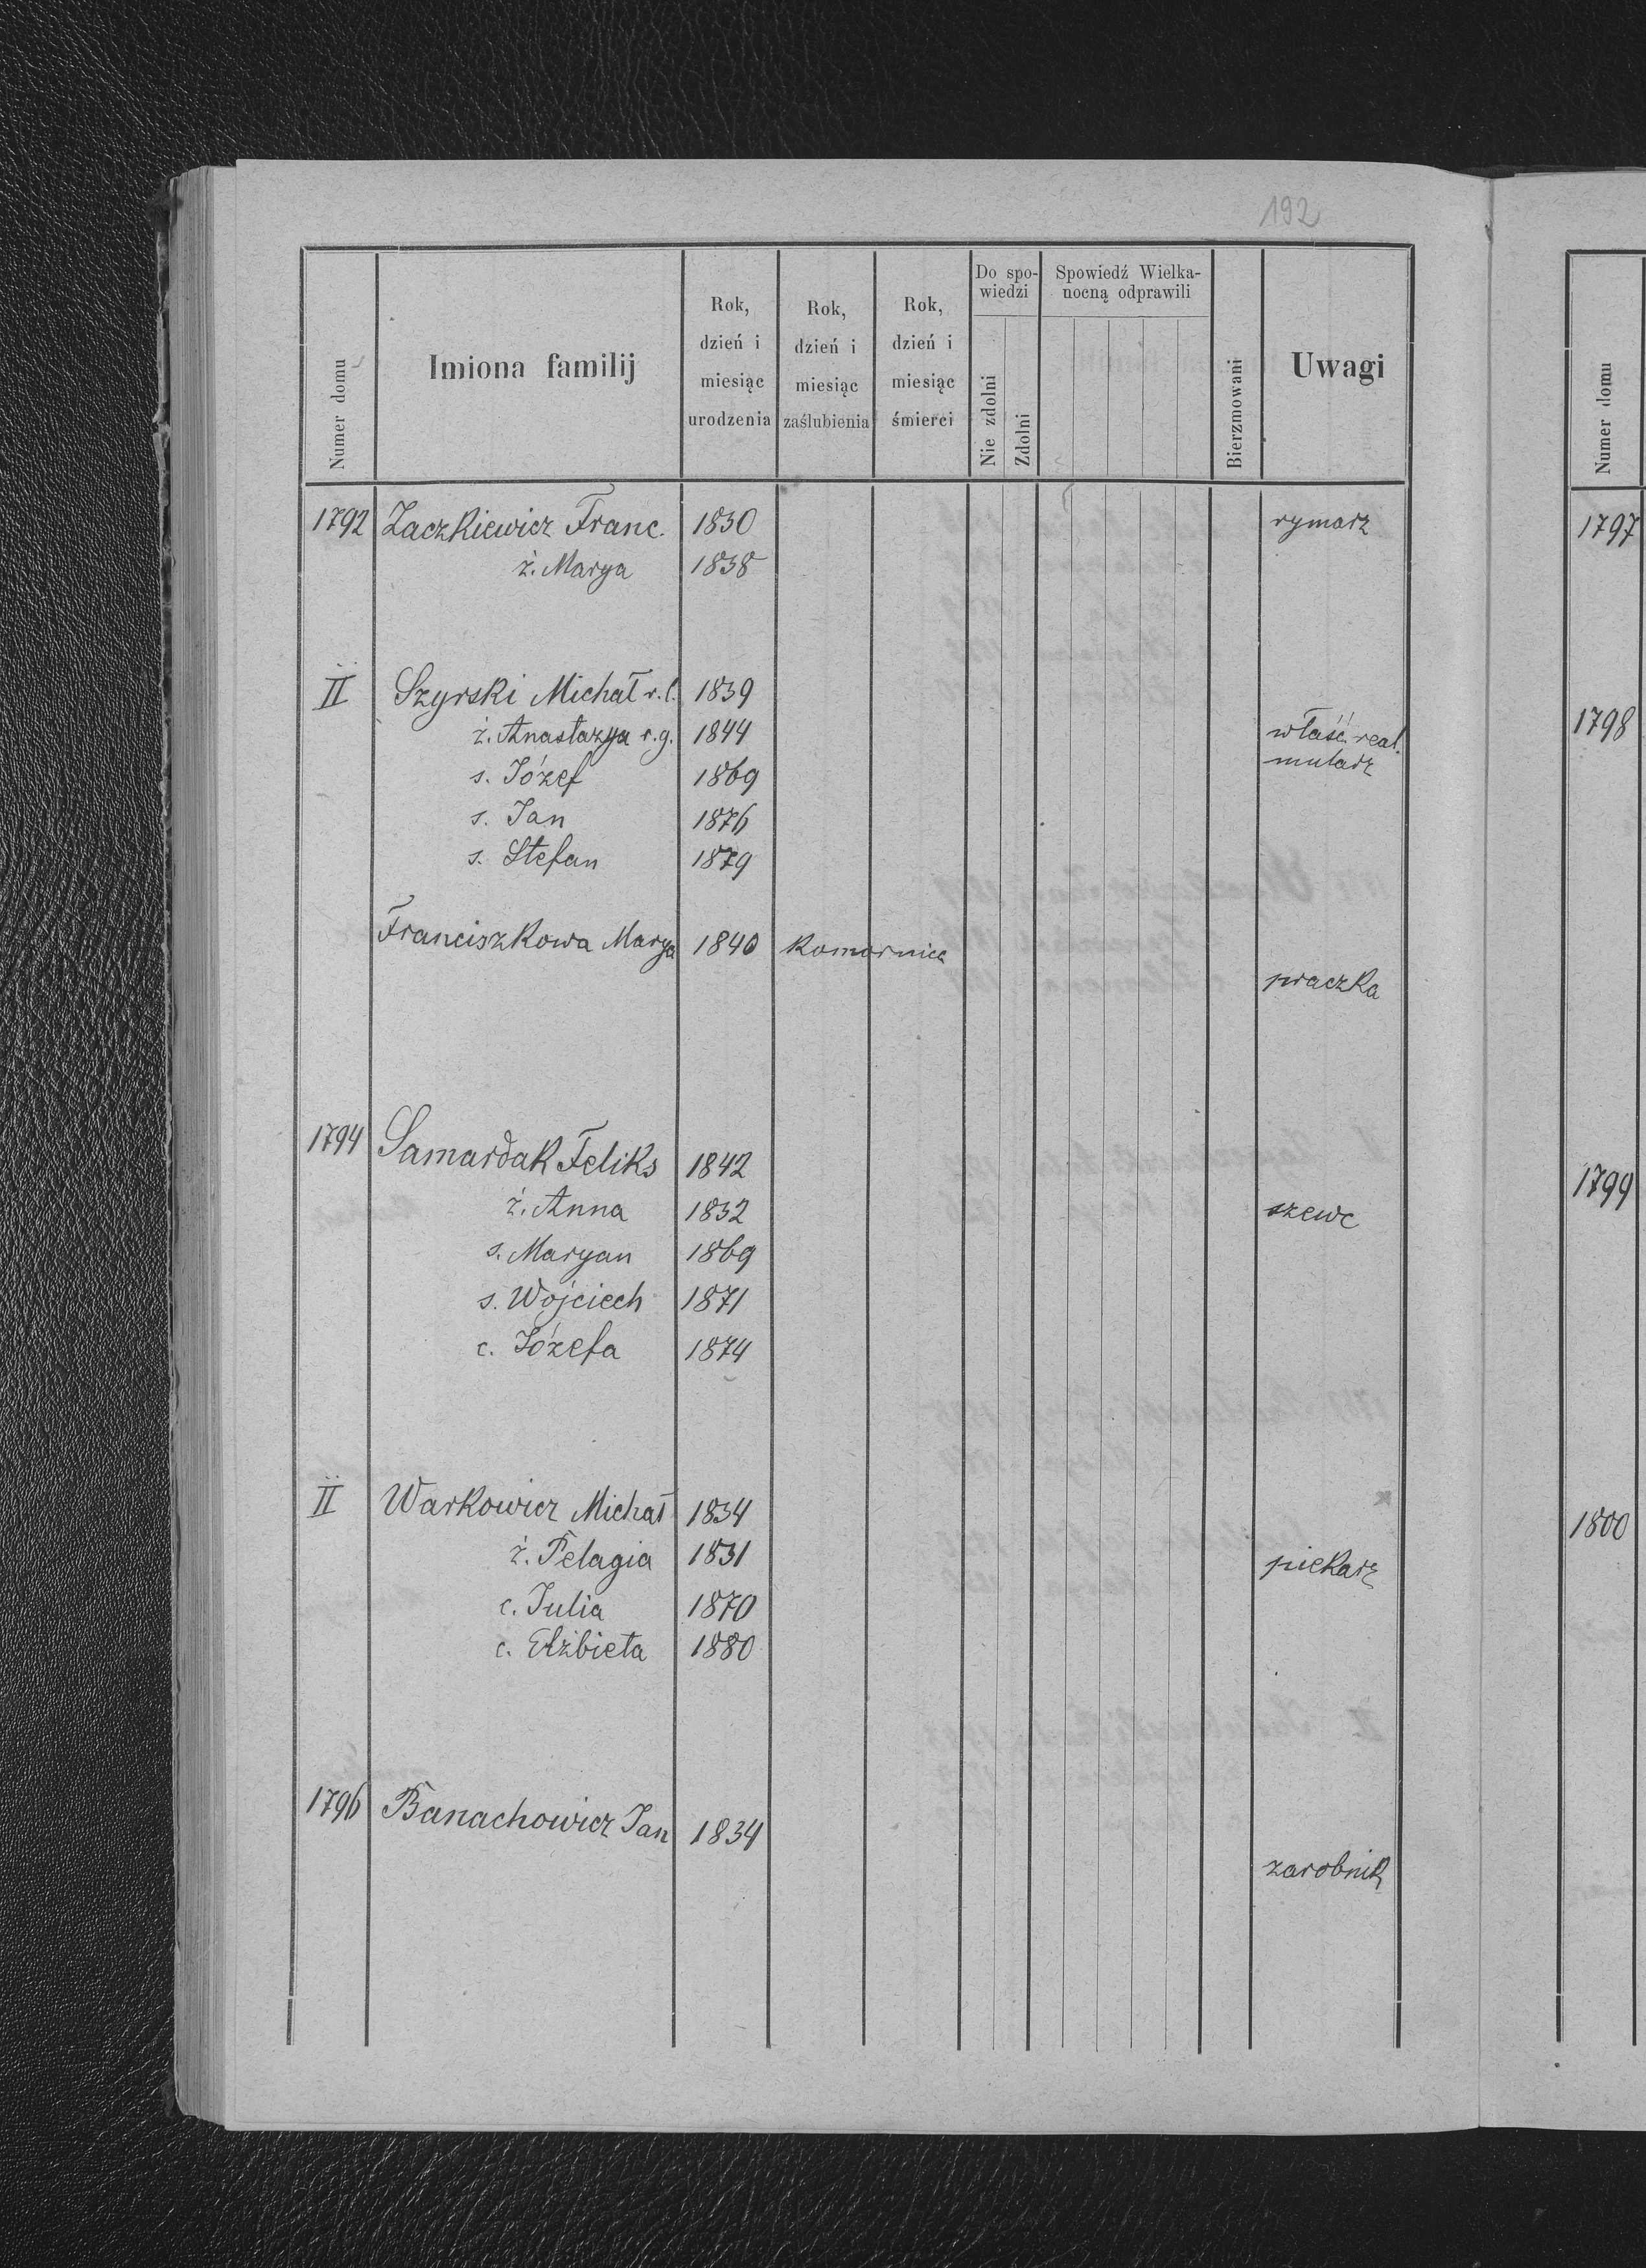 192
Numer domu
Imiona familij
Rok, dzień i miesiąc urodzenia
Rok, dzień i miesiąc zaślubienia
Rok, dzień i miesiąc śmierci
Do spo-wiedzi
Nie zdolni
Zdolni
Spowiedź Wielka-nocną odprawili
Bierzmowani
Uwagi
1792 Zaczkiewicz Franc. 1830 rymarz
ż. Marya 1838
II Szyrski Michał r.l. 1839
ż. Anastazya r.g. 1844 właść. real.
mularz
s. Józef 1869
s. Jan 1876
s. Stefan 1879
Franciszkowa Marya 1840 Komornica
praczka
1794 Samardak Feliks 1842
ż. Anna 1832 szewc
s. Maryan 1869
s. Wojciech 1871
c. Józefa 1874
II Warkowicz Michał 1834
ż. Pelagia 1831 piekarz
c. Julia 1870
c. Elżbieta 1880
1796 Banachowicz Jan 1834
zarobnik
Numer domu
1797
1798
1799
1800